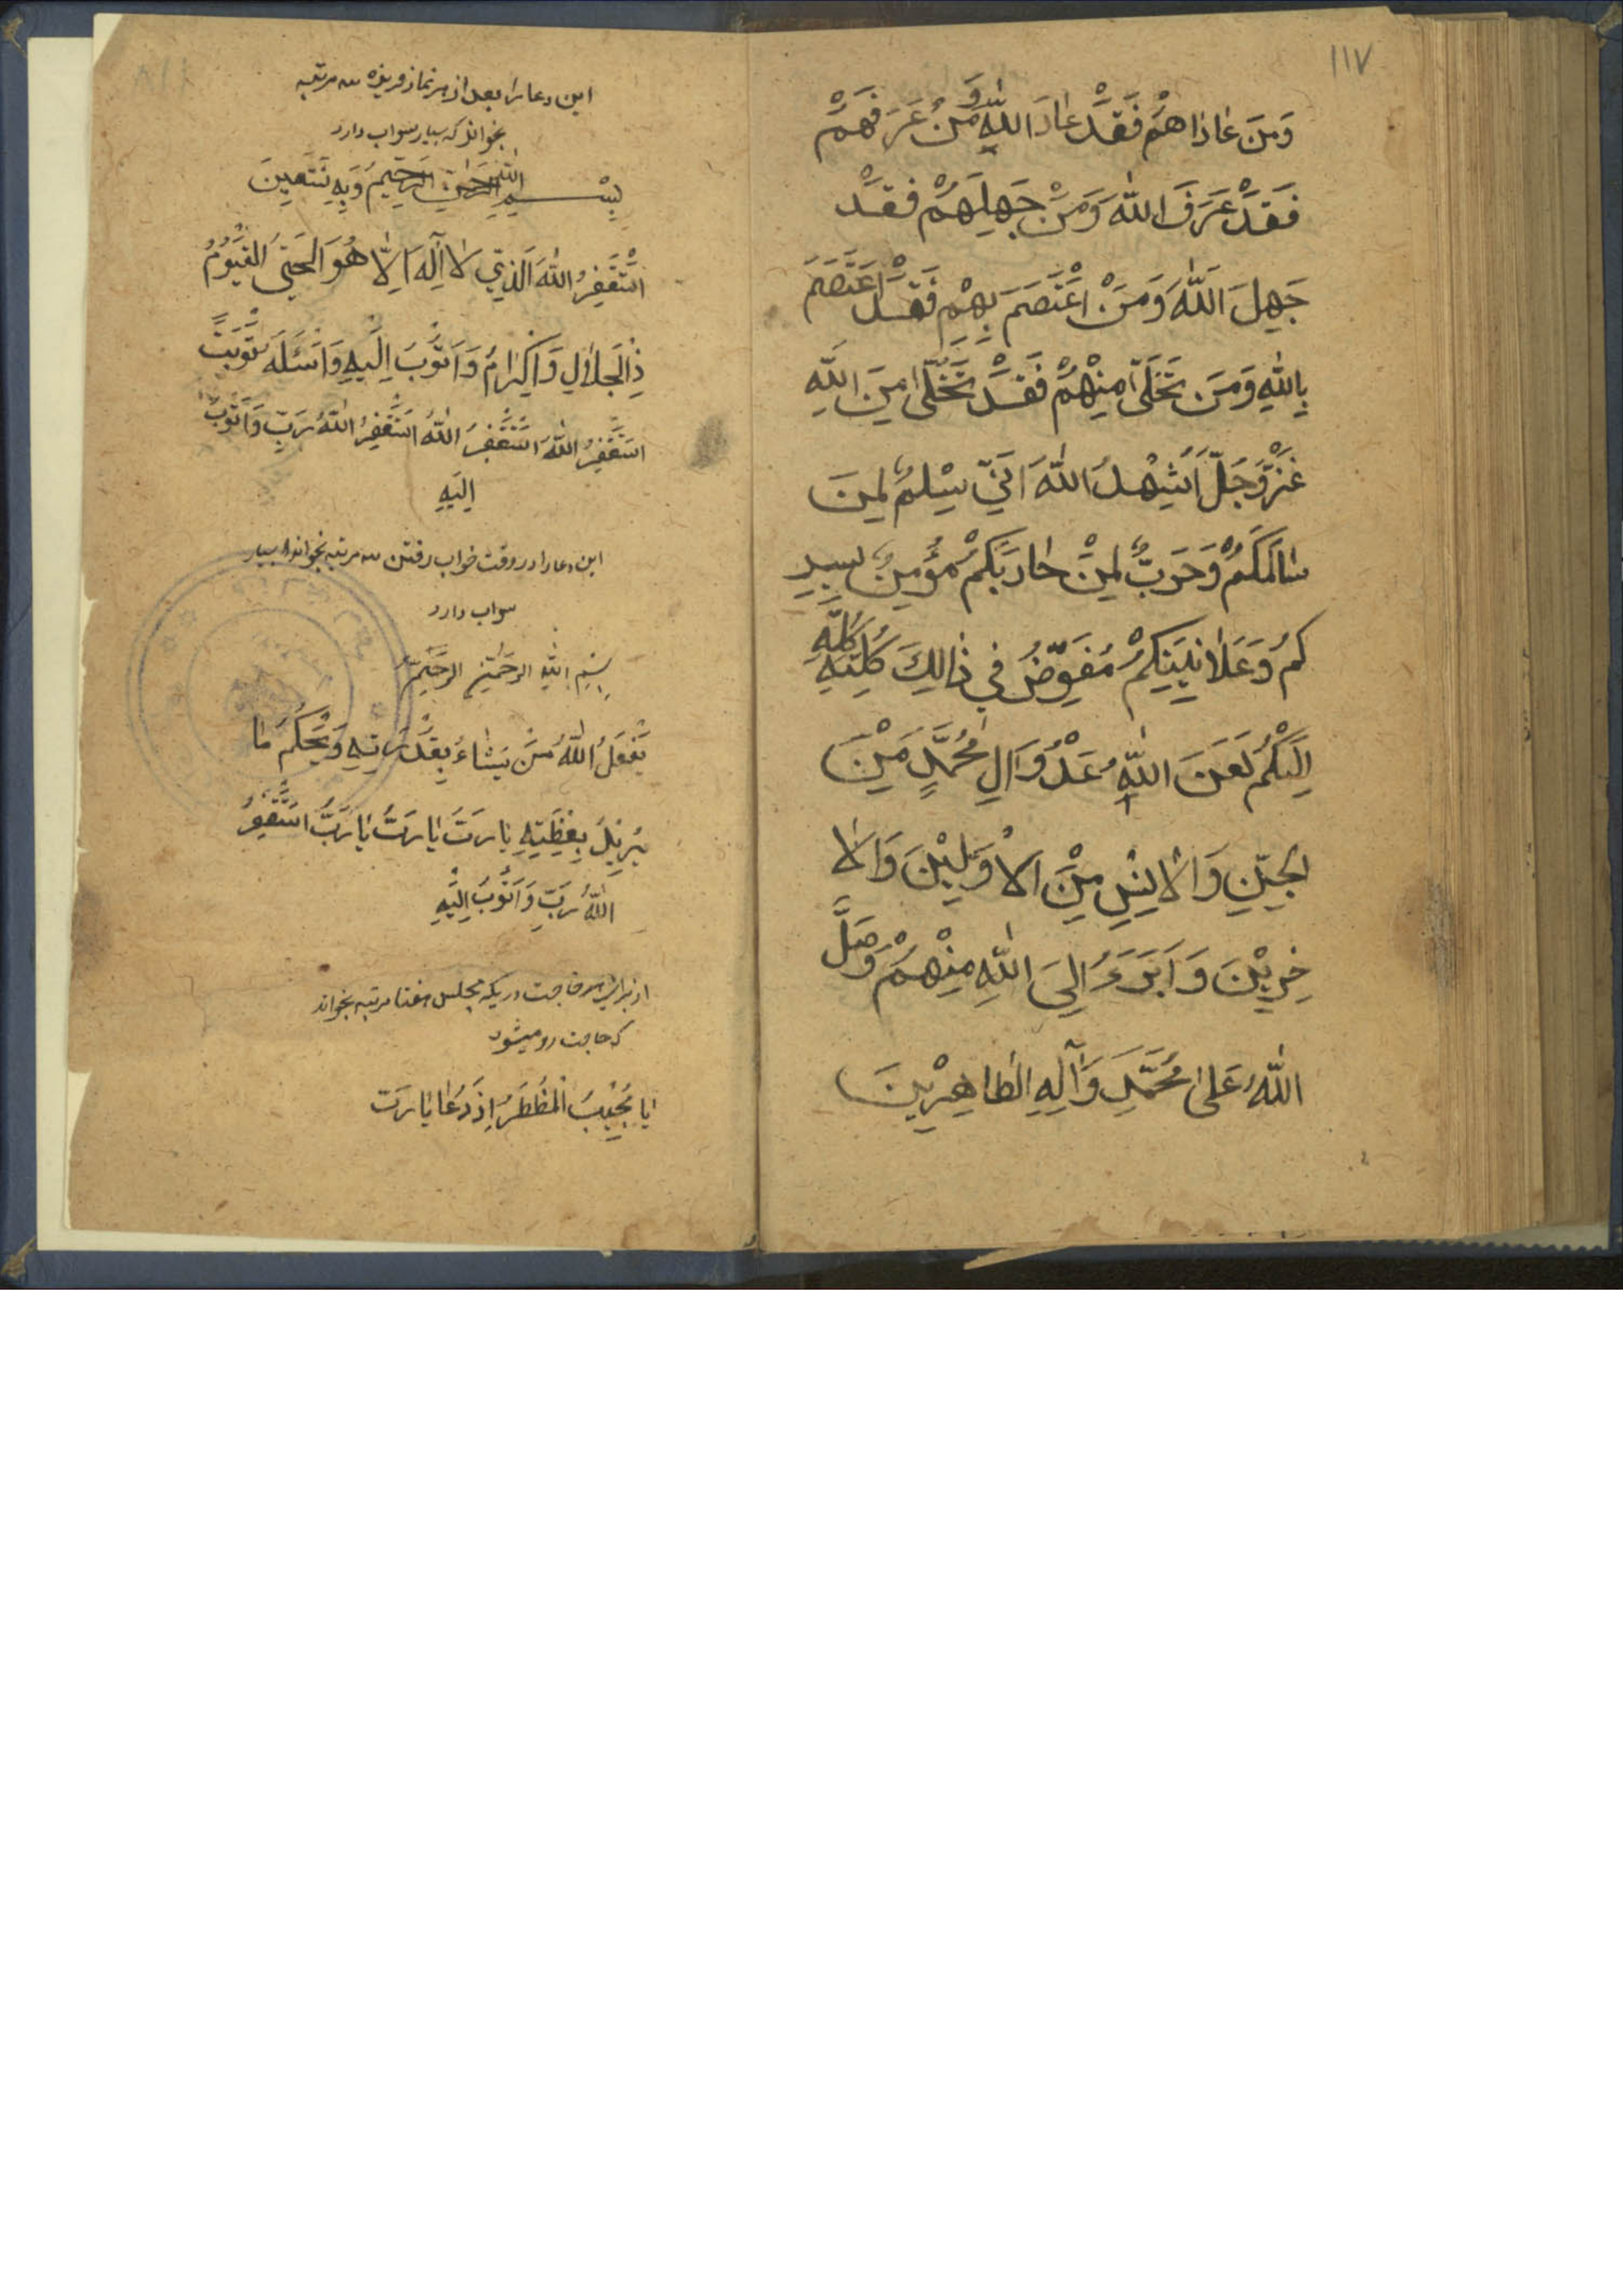 ١١٧
وَمَنَ عٰادٰاهُمْ فَقَدْ عٰادَ اللهِ وَمَنْ عَرَفَهُمْ
فَقَدْ عَرَفَ اللهَ وَمَنْ جَهِلَهُمْ فَقَدْ
جَهِلَ اللهَ وَمَنْ اعْتَصَمَ بِهِمْ فَقَدْ اعْتَصَمَ
بِاللهِ وَمَنَ تَخَلّىٰ مِنْهُمْ فَقَدْ تَخَلّىٰ مِنَ اللهِ
عَزَّوَجَلَّ اُشْهِدُ اللهَ اَنّي سِلْمٌ لِمَنَ
سٰالَمَكُمْ وَحَرَبٌ لِمَنْ حٰارَبَكُمْ مُؤْمِنٌ بِسِرِ
كُمْ وَعَلٰانِيَتِكُمْ مُفَوِّضٌ في ذٰالِكَ كُلِّهِ
اِلَيْكُمْ لَعَنَ اللهِ عَدُوَّ اٰلِ مُحَمَّدٍ مِنَ
الْجِنِّ وَالْاِنْسِ مِنَ الْاَوَّلينَ وَالْا
خِرينَ وَاَبَرَءُ اِلىَ اللهِ مِنْهُمْ وَصَلَّ
اللهُ عَلىٰ مُحَمَّدٍ وَآلِهِ الطّاهِرْينَ
١١٨
این دعا را بعد از هر نماز فریزه سه مرتبه
بخواند که بسیار سواب دارد
بِسْمِ اللهِ الرَّحْمٰنِ الرَّحيمُ وَبِهِ نَسْتَعينَ
اسْتَغْفِرُ اللهَ الَّذي لا اِلٰهَ اِلّا هُوَ الْحَيّ الْقَيُّومُ
ذِالْجَلٰالِ وَاكْرٰامُ وَاَتُوْبُ اِلَيْهِ وَاَسْئَلَهُ تَوْبَتً
اسْتَغْفِرُ اللهَ اسْتَغْفِرُ اللهُ اسْتَغْفِرُ اللهُ رَبّ وَاَتُوبُ
اِلَيْهِ
این دعا را در وقت خواب رفتن سه مرتبه بخواند بسیار
سواب دارد
بِسْمِ اللهِ الرَّحْمٰنِ الرَّحيمُ
يَفْعَلُ اللهُ مَنْ يَشٰاءُ بِقُدْرَتِهِ وَيَحْكُمُ مٰا
يُريدُ بِعِظَتِهِ يٰا رَبَّ يٰا رَبُّ يٰا رَبُّ اسْتَغْفِرُ
اللهُ رَبّ وَاَتُوبُ اِلَيْهِ
از برای هر حاجت در یکه مجلس هفتا مرتبه بخواند
که حاجت روا میشود
اَيا مُجيْبُ الْمُظْطَرُ اِذَ دَعٰا يٰا رَبّ